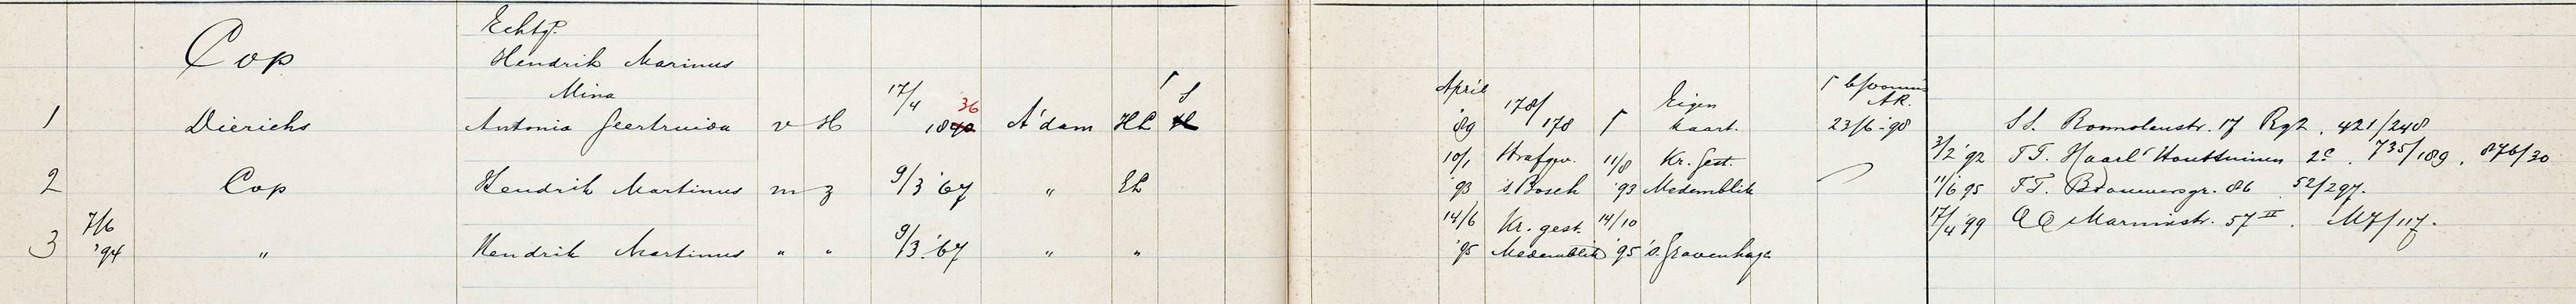 Echtg.
Cop Hendrik Marinus
Mina
1 Dierichs Antonia Geertruida v H 17/4 1840 36 A'dam HL
April '89 178/178 Eigen kaart. AR. 23/6-'98 SS. Roomolenstr. 17 Rg2. 421/248
2 Cop Hendrik Martinus m z 9/3 '67 " EL
10/1 '93 Strafgev. 's Bosch 11/8 '93 Kr. Gest. Medemblik
3/2 '92 TT. Haarl Houttuinen 2c. 735/189. 876/30
11/6 95 TT. Brouwersgr. 86 52/297.
3 7/6 '94 " Hendrik Martinus " " 9/3 '67 " "
14/6 '95 Kr. gest. Medemblik 14/10 '95 's Gravenhage
17/4 99 QQ Marnixstr. 57 II. M7/117.